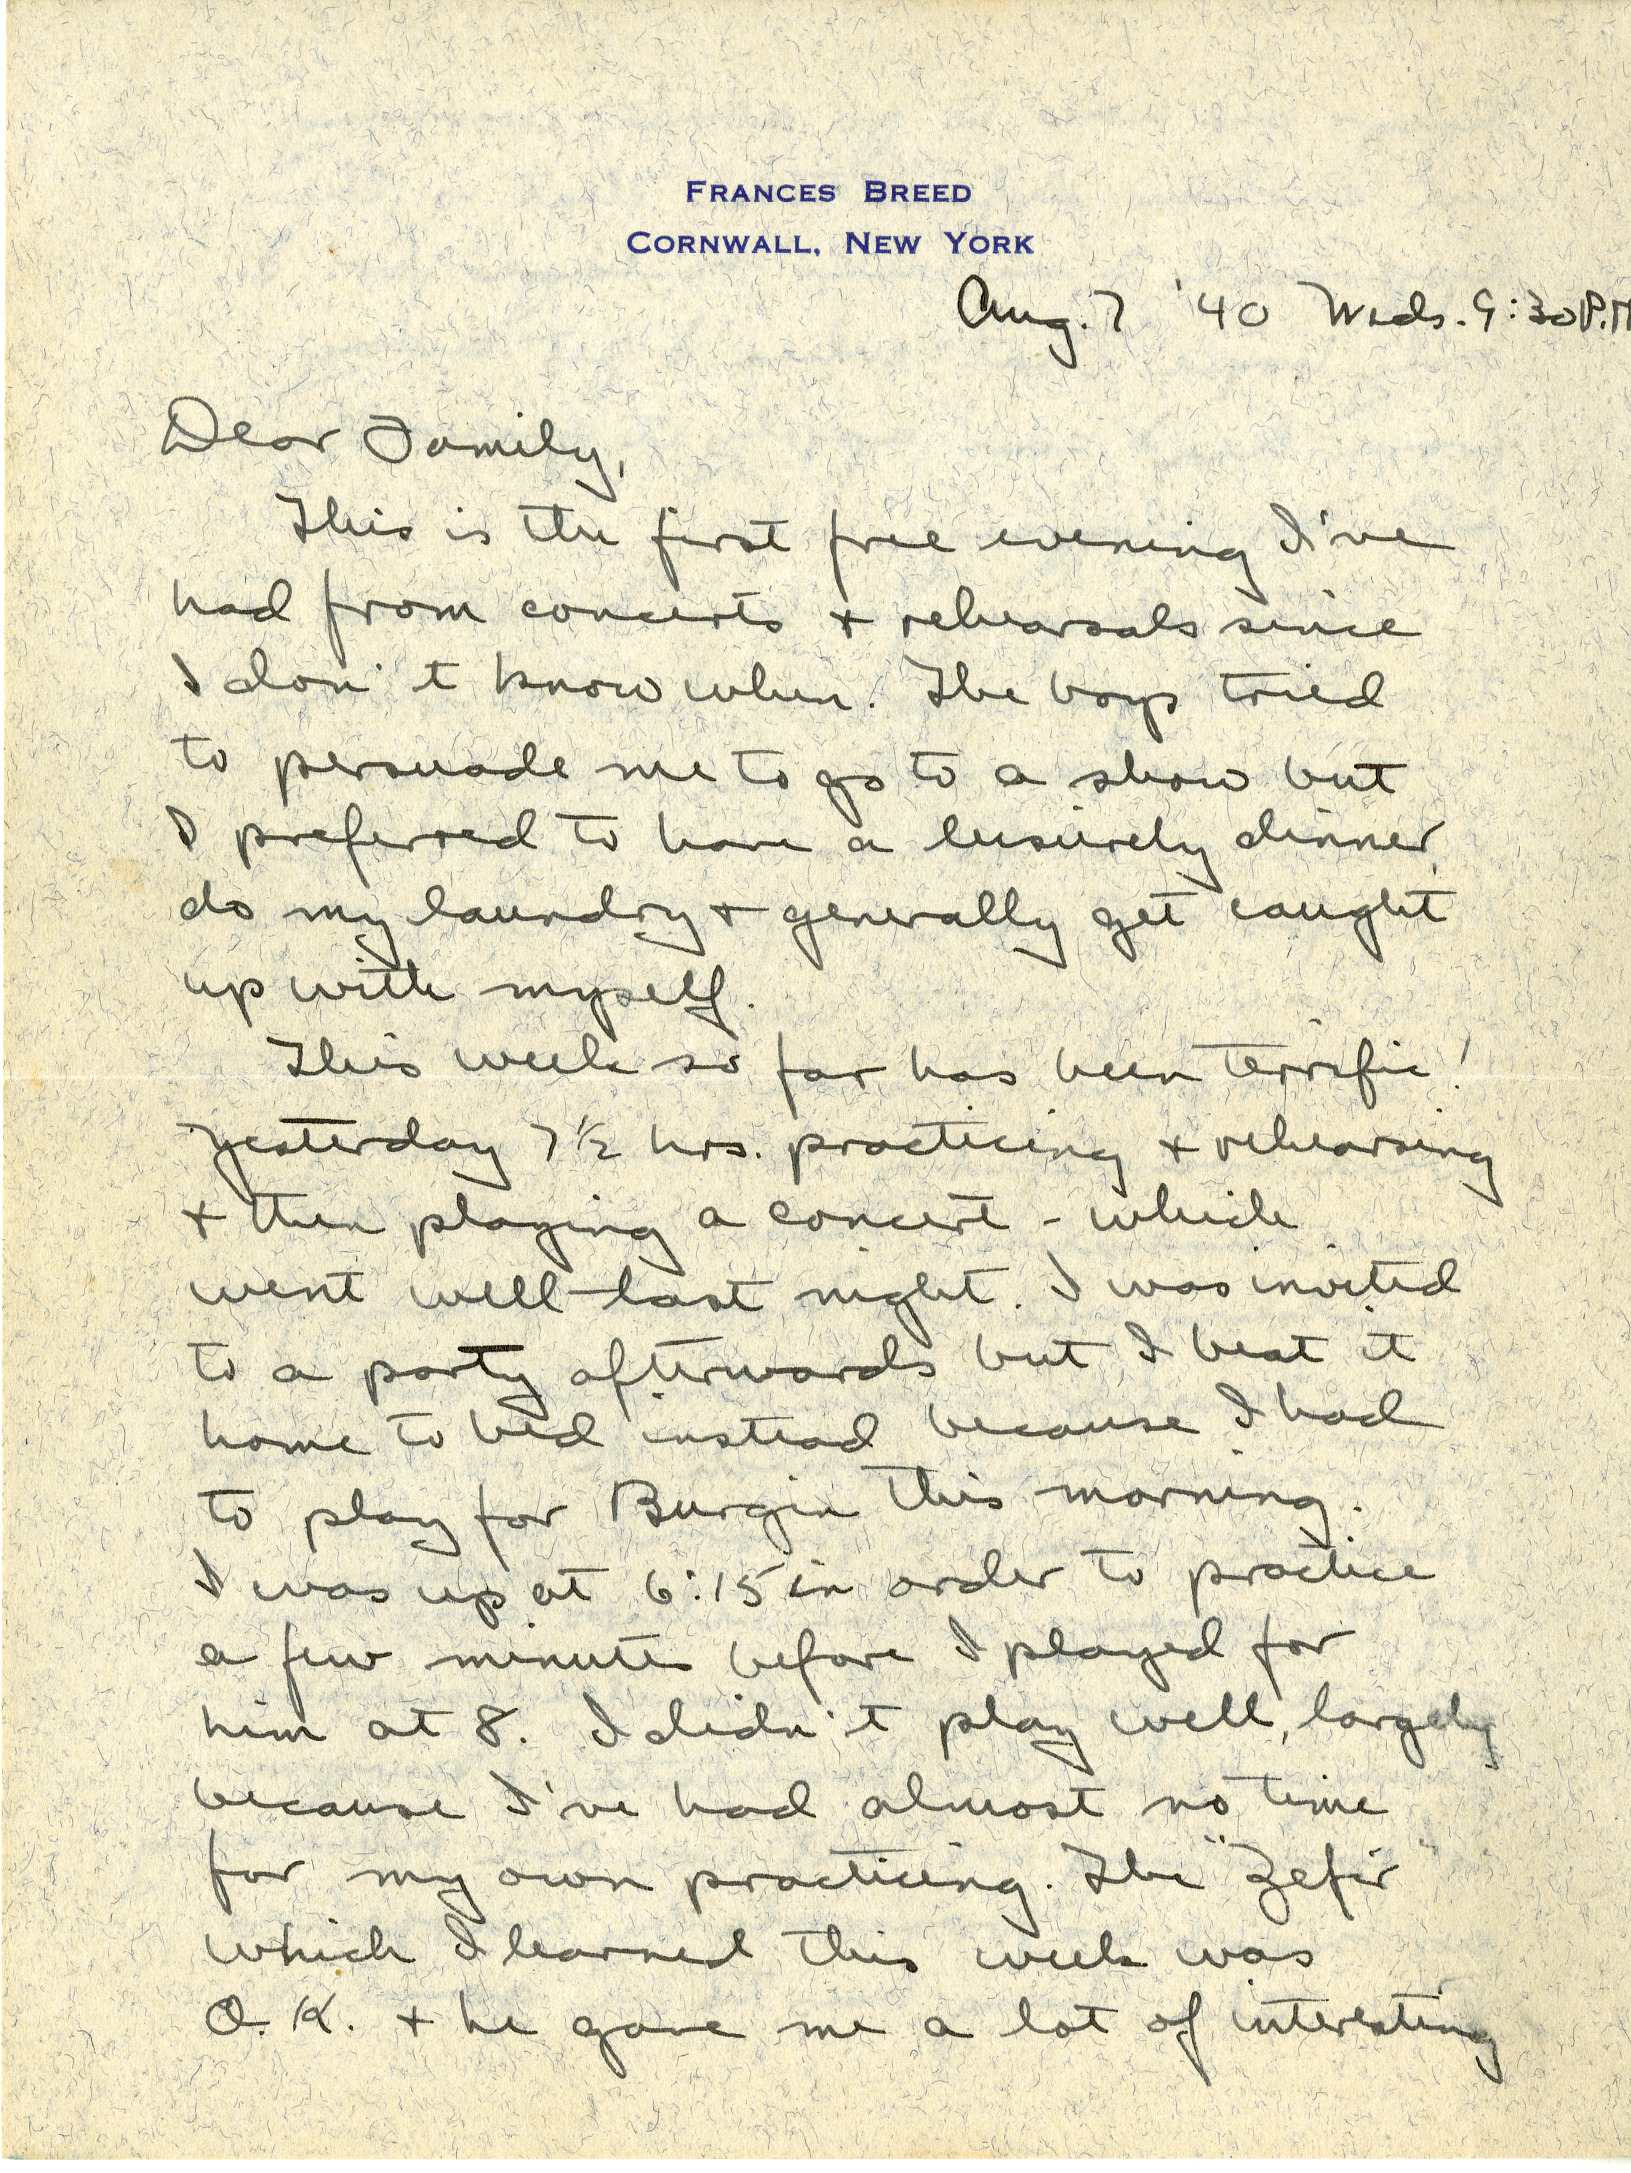 FRANCES BREED
CORNWALL, NEW YORK
Aug. 7 '40 Weds. 9:30 P.M
Dear Family,
This is the first free evening I've
had from concerts + rehearsals since
I don't know when. The boys tried
to persuade me to go to a show but
I preferred to have a leisurely dinner,
do my laundry + generally get caught
up with myself.
This week so far has been terrific!
Yesterday 7 ½ hrs. practicing + rehearsing
+ then playing a concert - which
went well - last night. I was invited
to a party afterwards but I beat it
home to bed instead because I had
to play for Burgin this morning.
I was up at 6:15 in order to practice
a few minutes before I played for
him at 8. I didn't play well, largely
because I've had almost no time
for my own practicing. The "Zefir"
which I learned this week was
O.K. + he gave me a lot of interesting